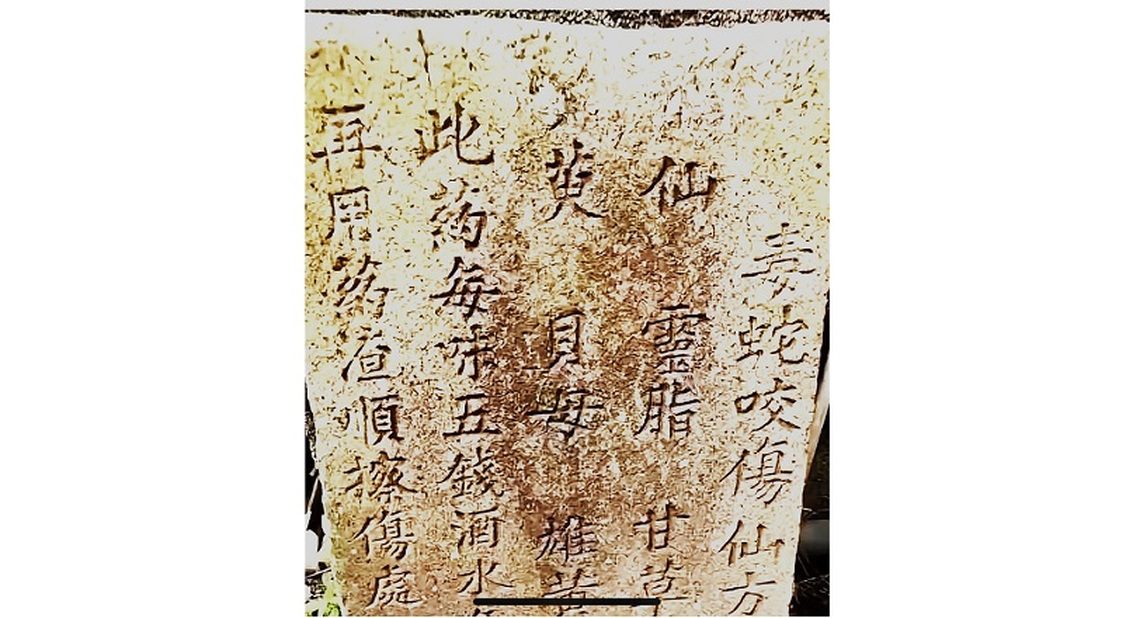 毒蛇咬傷仙方
仙 靈脂 甘草
黄 貝母 雄黄
此葯每味五錢酒水
再用葯渣順擦傷處